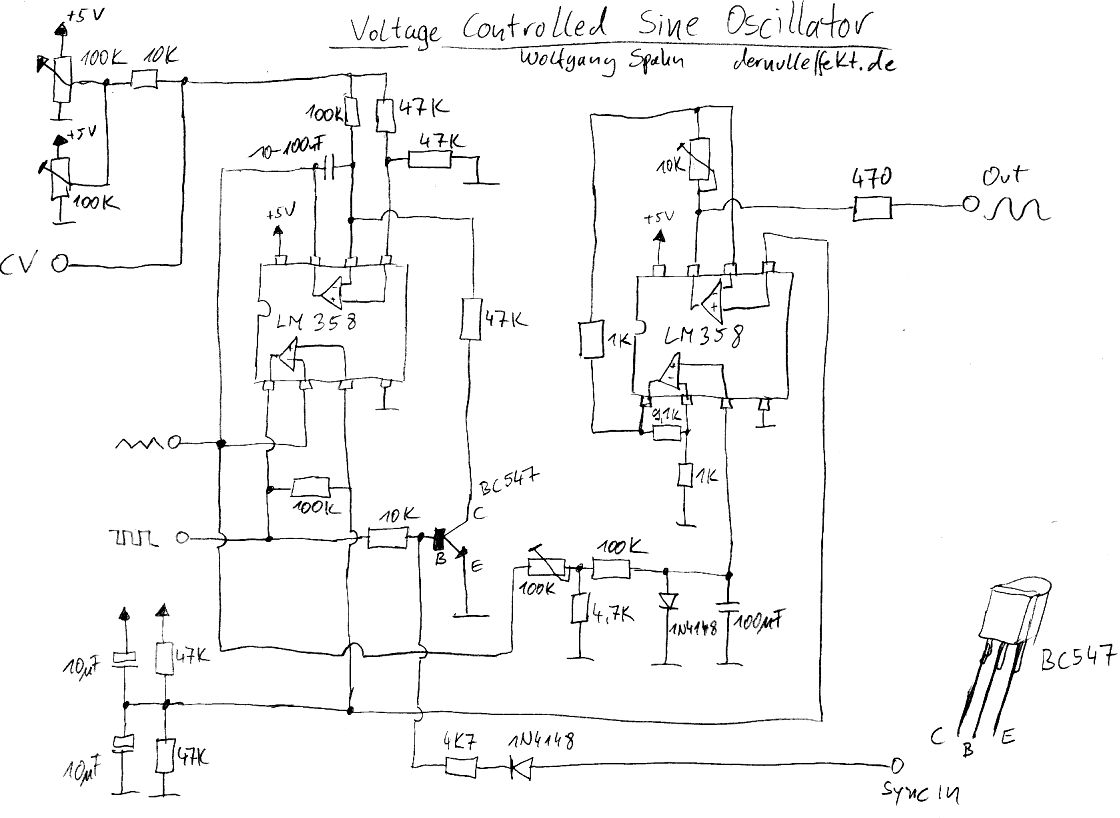 Voltage Controlled Sine Oscillator
Wolfgang Spahn dernulleffekt.de
+5V
100K
10K
+5V
100K
CV
100K
47K
47K
10-100nF
+5V
LM358
47K
100K
BC547
C
B
E
10K
10K
470
Out
+5V
LM358
1K
9,1K
1K
100K
100K
4,7K
1N4148
100nF
10µF
47K
10µF
47K
4K7
1N4148
Sync In
BC547
C
B
E